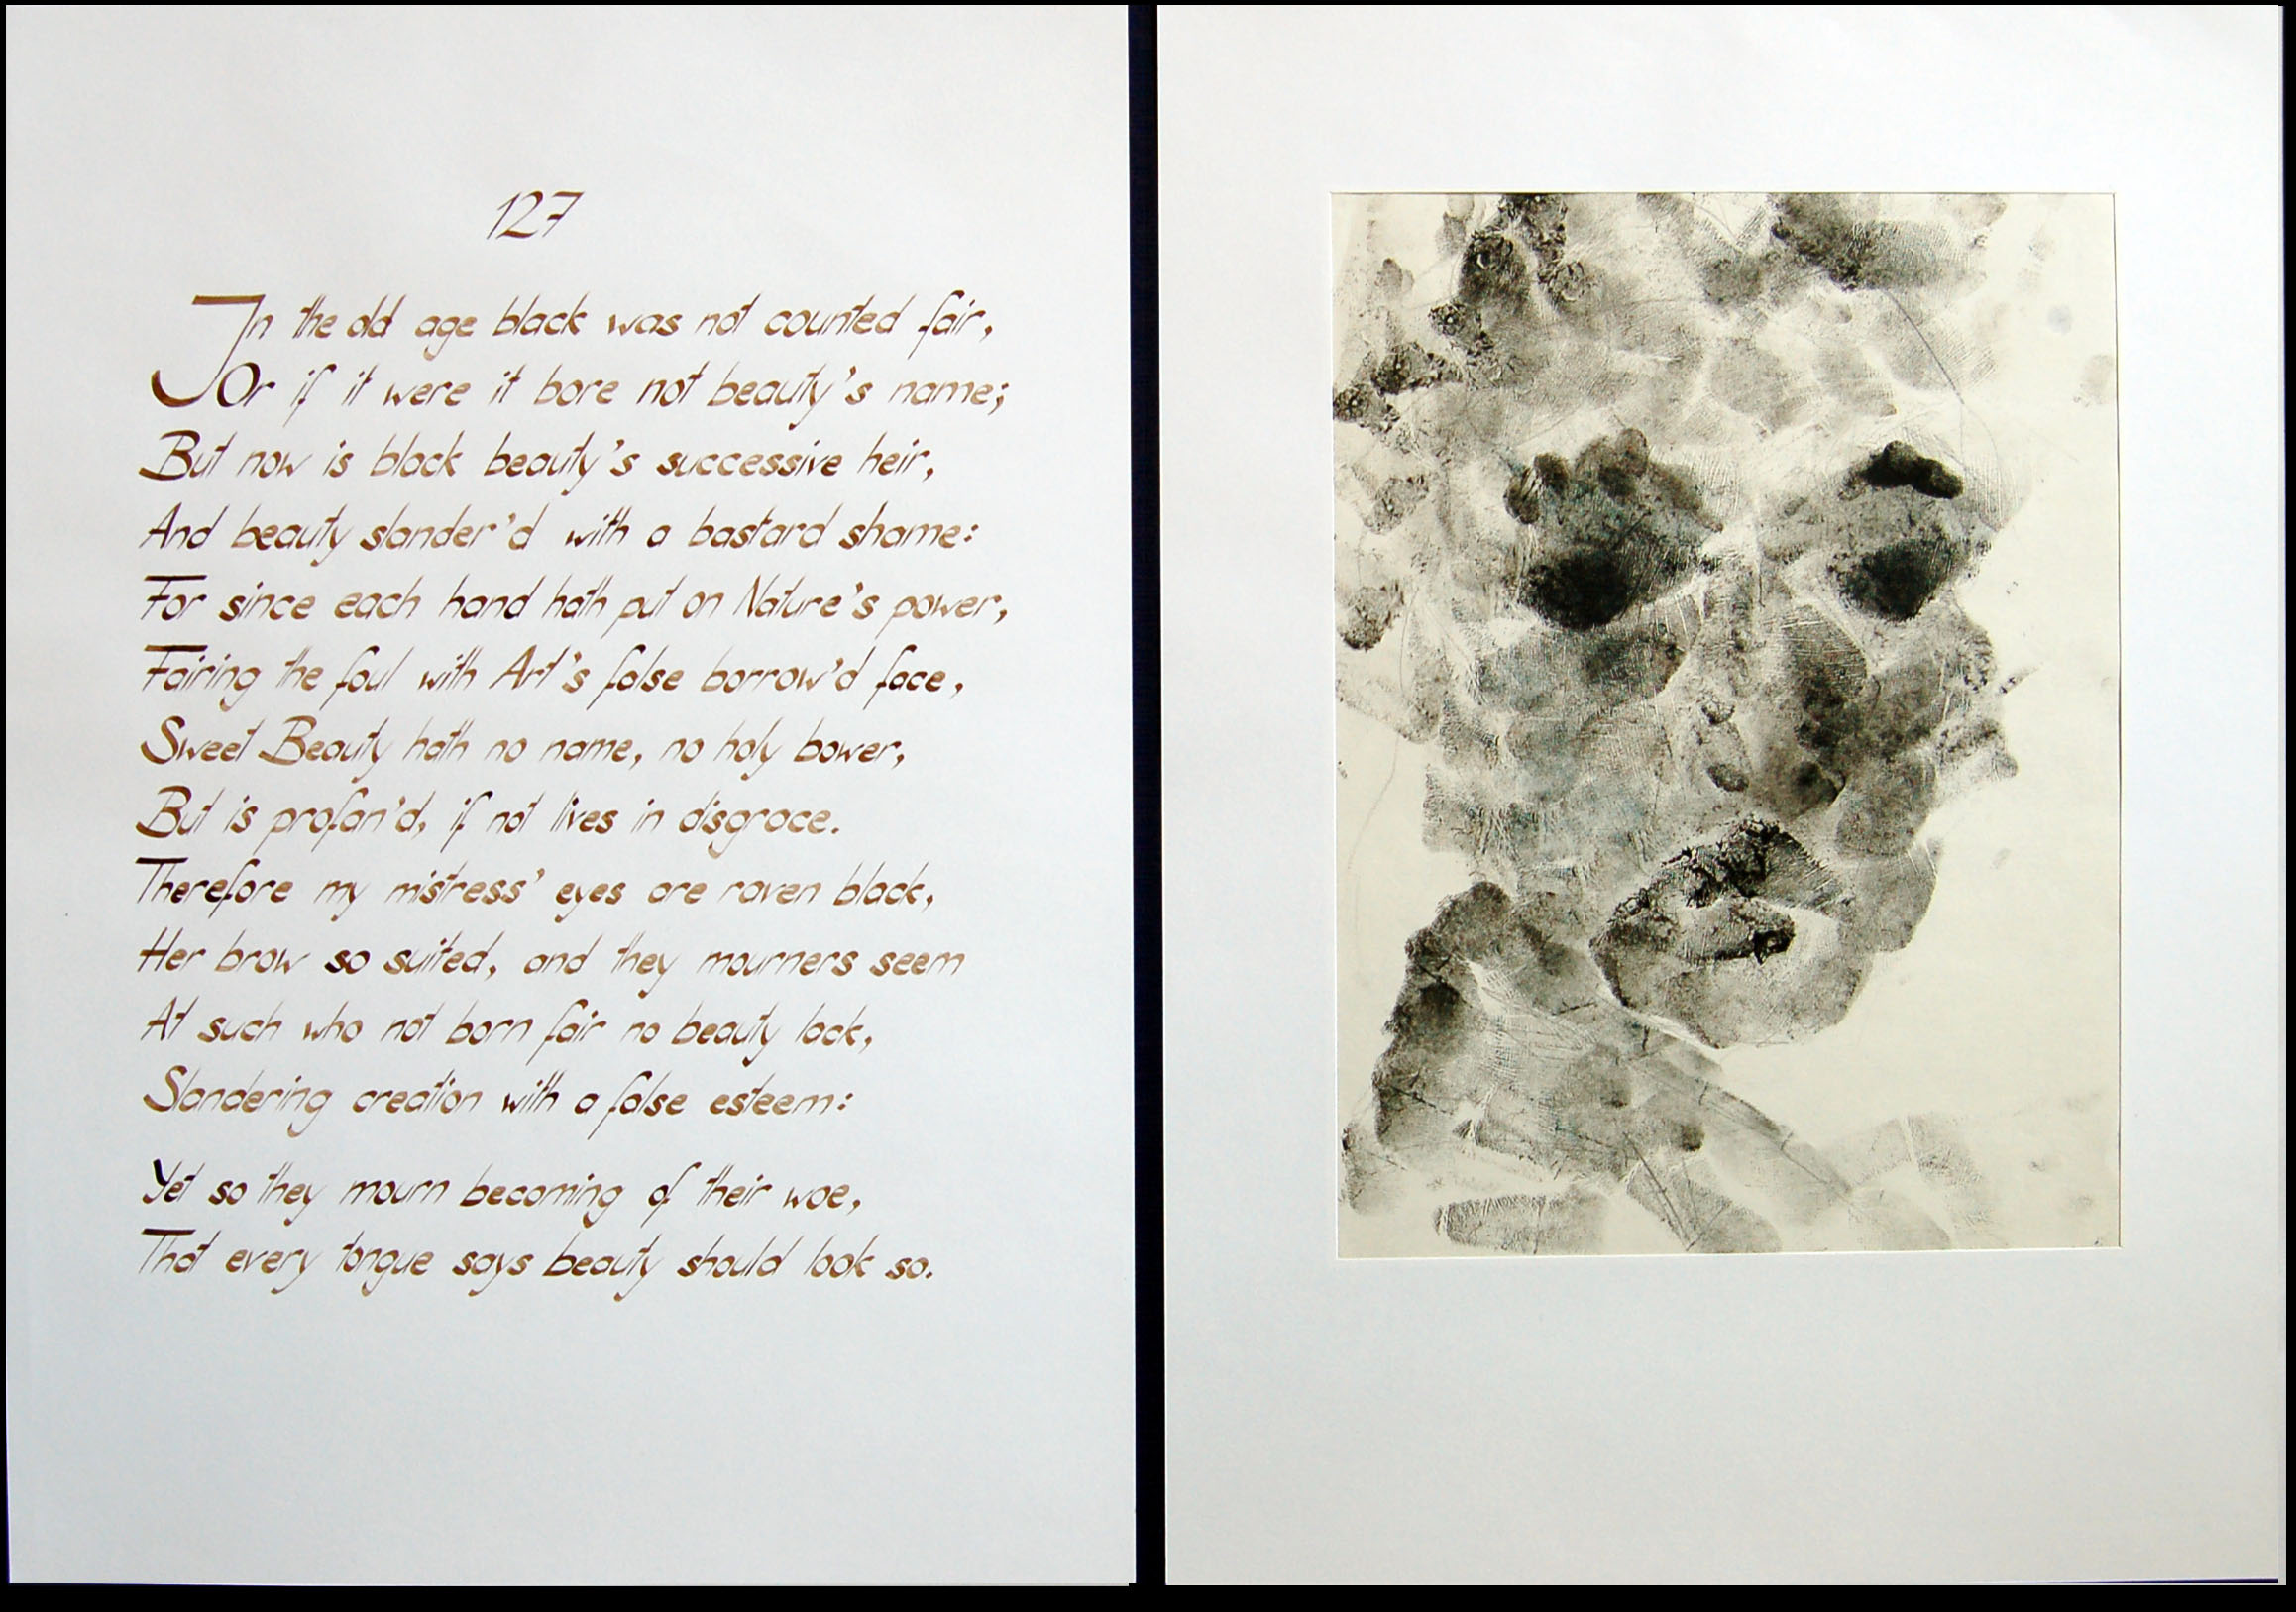 127
In the old age black was not counted fair,
Or if it were it bore not beauty's name;
But now is black beauty's successive heir,
And beauty slander'd with a bastard shame:
For since each hand hath put on Nature's power,
Fairing the foul with Art's false borrow'd face,
Sweet Beauty hath no name, no holy bower,
But is profan'd, if not lives in disgrace.
Therefore my mistress' eyes are raven black,
Her brow so suited, and they mourners seem
At such who not born fair no beauty lack,
Slandering creation with a false esteem:
Yet so they mourn becoming of their woe,
That every tongue says beauty should look so.